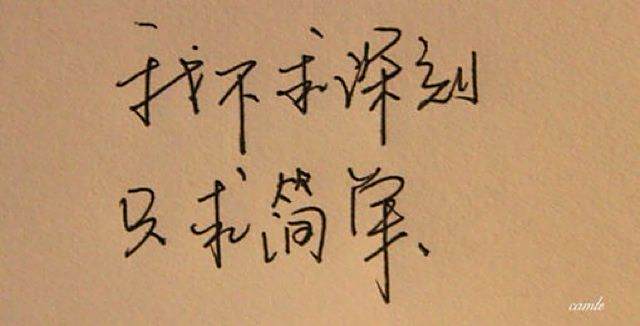 我不求深刻
只求简单、
camle